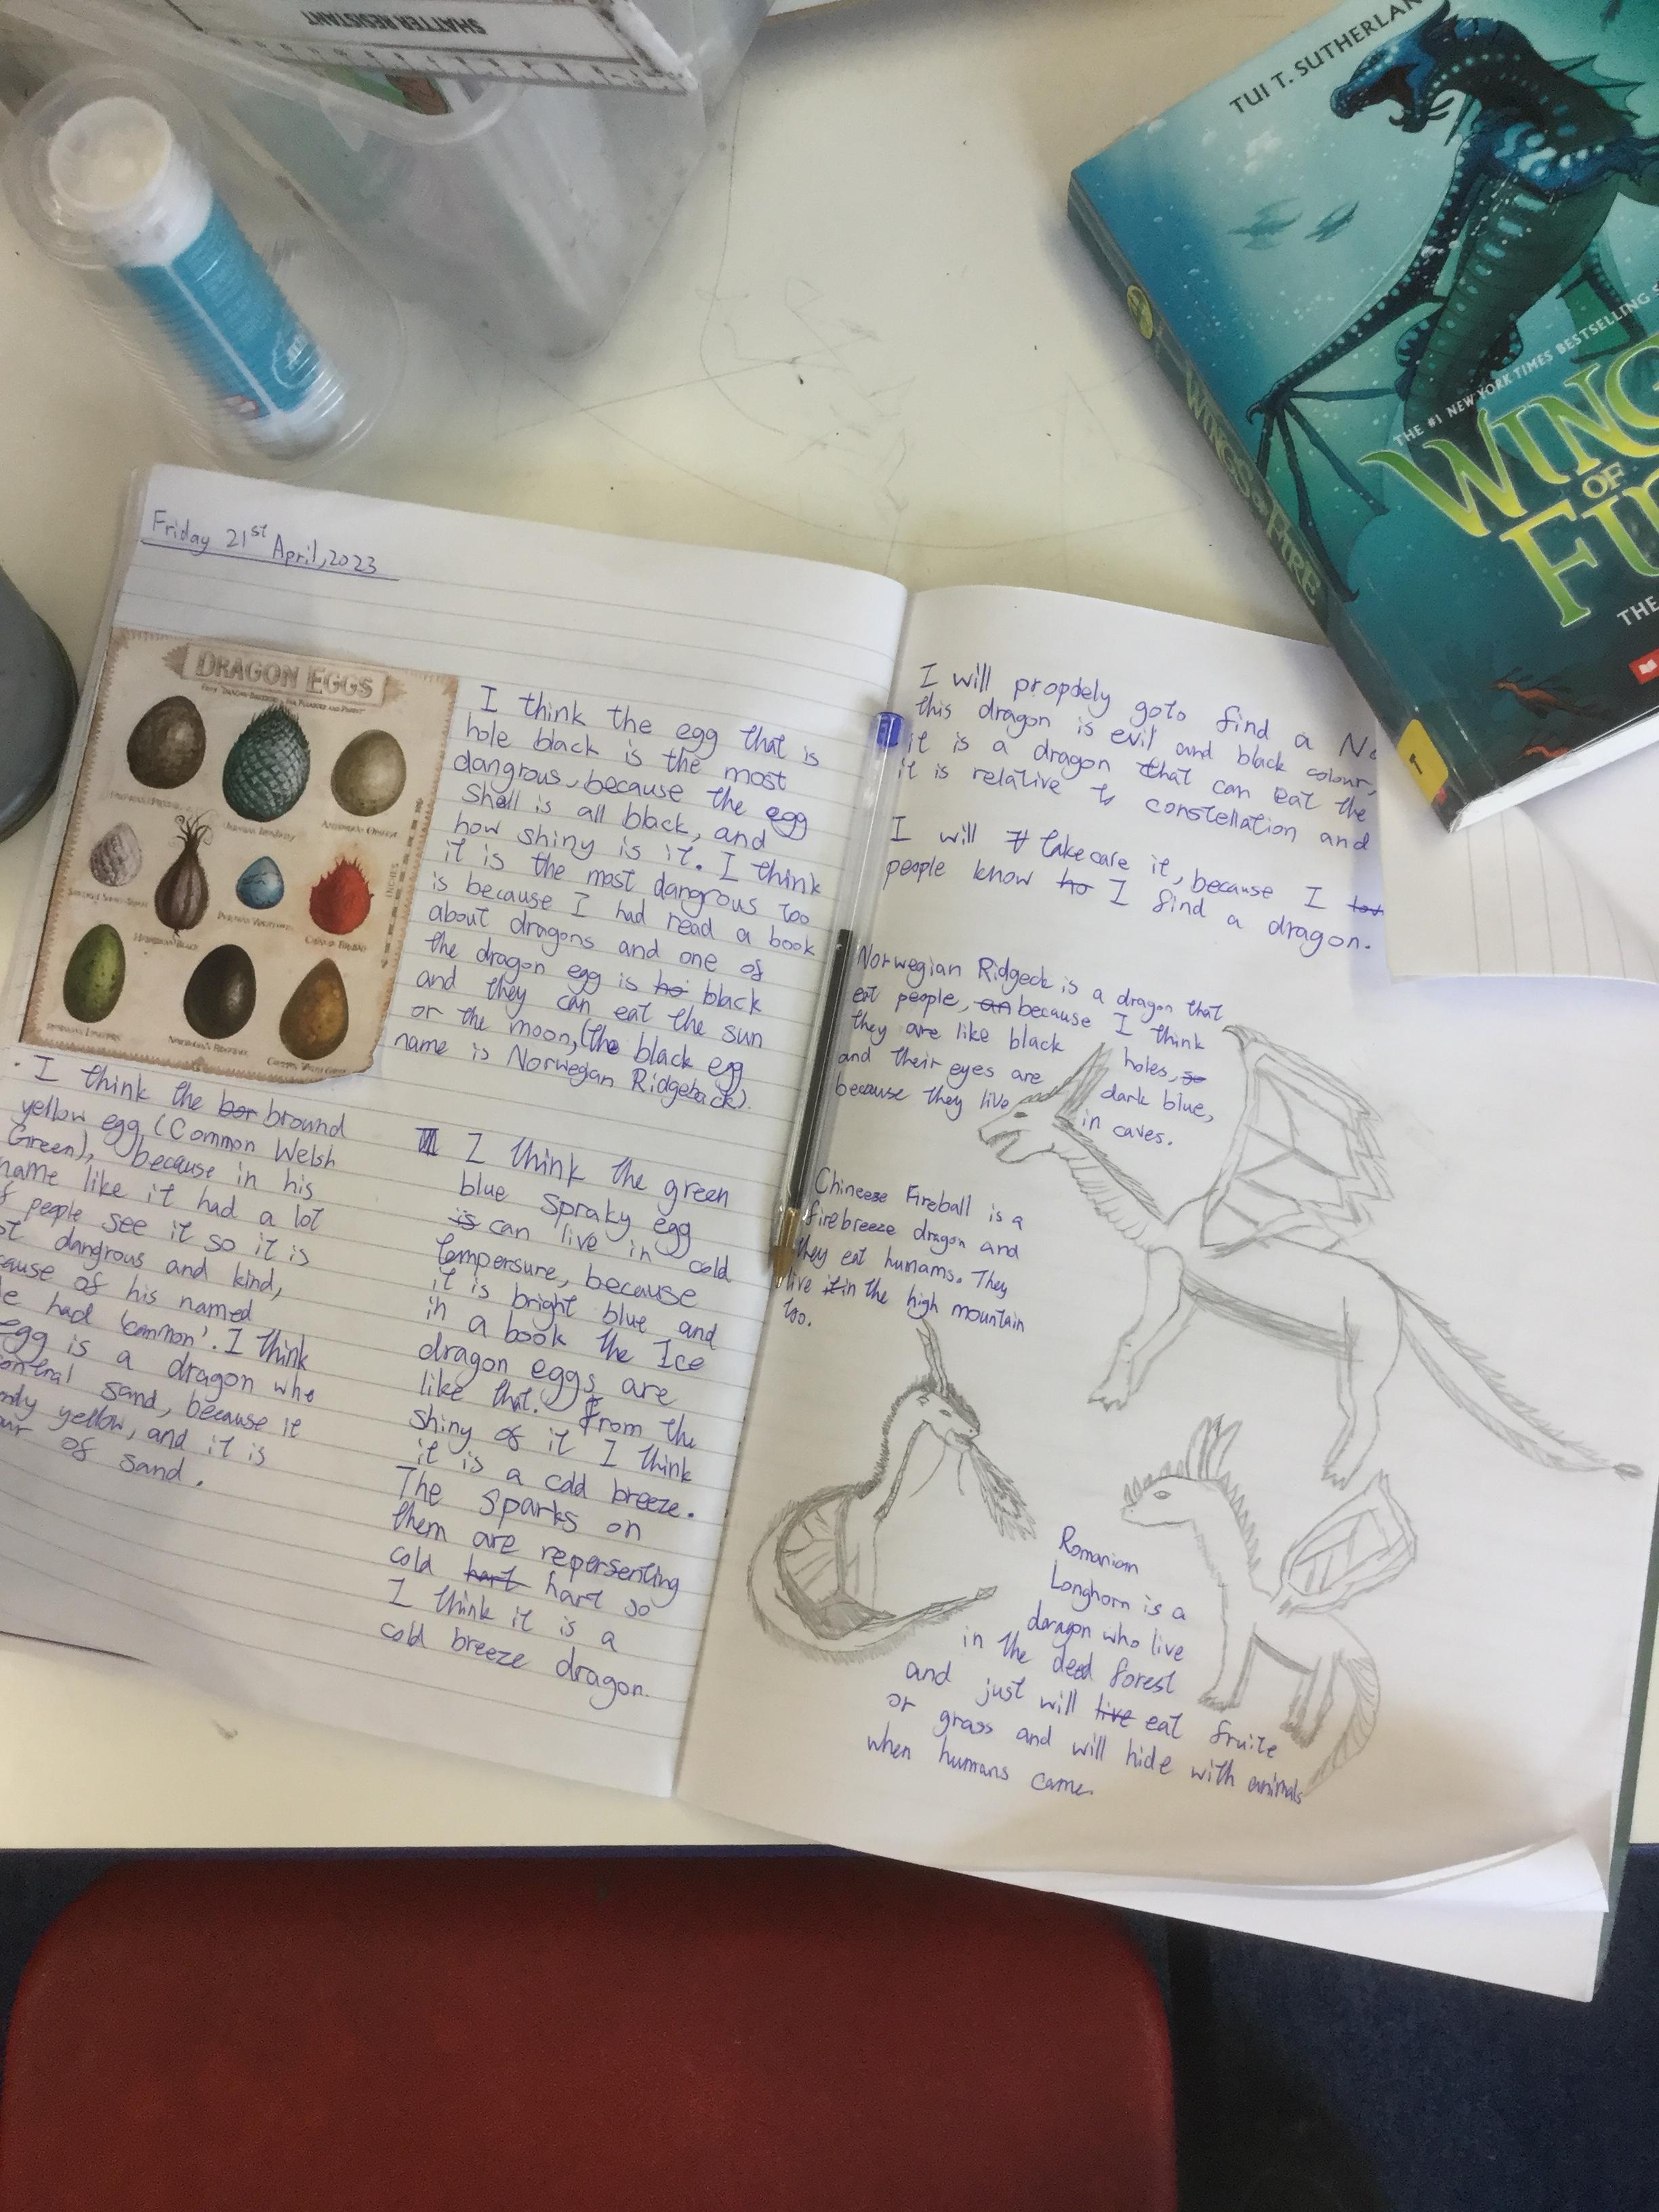 SHATTER RESISTANT
TUI T. SUTHERLAN
THE #1 NEW YORK TIMES BESTSELLING S
WING
OF
FI
THE
WINGS OF FIRE
1
Friday 21st April, 2023
DRAGON EGGS
INCHES
I think the egg that is
hole black is the most
dangrous, because the egg
Shell is all black, and
how shiny is it. I think
it is the most dangrous too
is because I had read a book
about dragons and one of
the dragon egg is ho black
and they can eat the sun
or the moon, (the black egg
name is Norwegan Ridgeback).
. I think the bor bround
yellow egg (Common Welsh
Green), because in his
name like it had a lot
f people see it so it is
st dangrous and kind,
cause of his named
e had 'common'. I think
egg is a dragon who
sand, because it
yellow, and it is
our of sand.
I think the green
blue Spraky egg
is can live in cold
tempersure, because
it is bright blue and
in a book the Ice
dragon eggs are
like that. From the
shiny of it I think
it is a cold breeze.
The sparks on
them are repersenting
cold hart hart so
I think it is a
cold breeze dragon.
I will propdely goto find a No
this dragon is evil and black colour,
it is a dragon that can eat the
it is relative to constellation and
I will take care it, because I
people know ho I find a dragon.
Norwegian Ridgeck is a dragon that
eat people, an because I think
they are like black holes, so
and their eyes are dark blue,
because they live in caves.
Chineese Fireball is a
firebreeze dragon and
they eat humams. They
live it in the high mountain
too.
Romanian
Longhorn is a
doragon who live
in the deed forest
and just will live eat fruite
or grass and will hide with animals
when humans came.